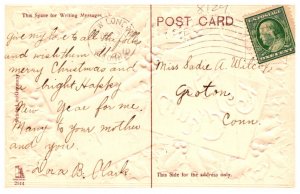 This Space for Writing Messages
POST CARD
Give my love to all the folks
and wish them all
merry Christmas and
bright Happy
New Year for me.
Many to your mother
and you
Miss Sadie A. Wilcox
Groton,
Conn.
This Side for the address only.
2914